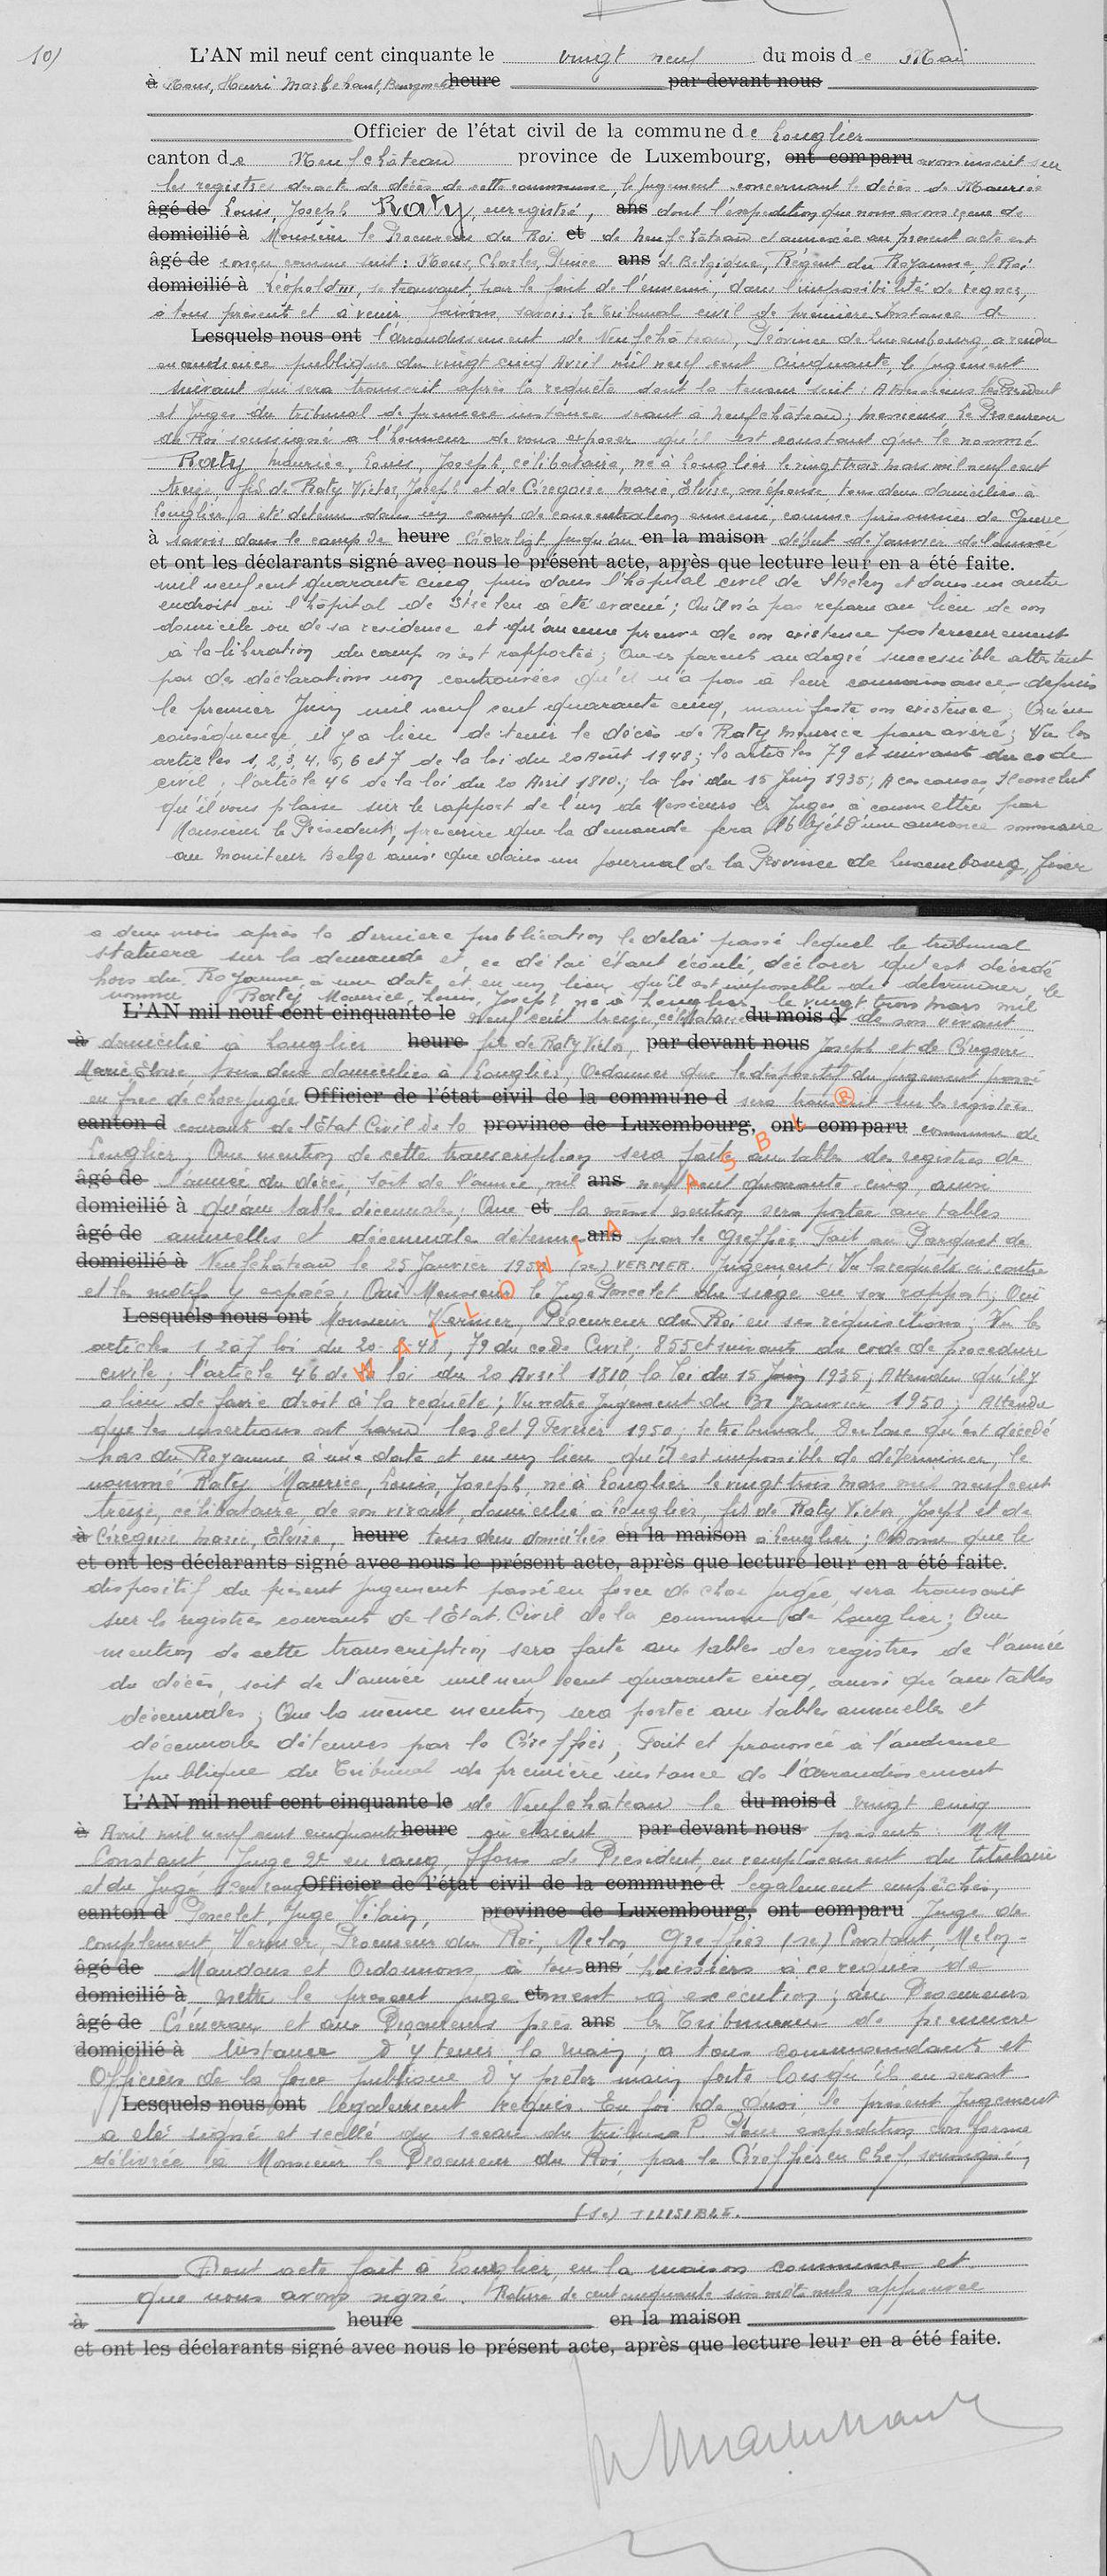 10)
L'AN mil neuf cent cinquante le vingt neuf du mois de Mai
à Nous, Henri Marlehant, Bourgmestre heure par devant nous
Officier de l'état civil de la commune de Longlier
canton de Neufchâteau province de Luxembourg, ont comparu avons inscrit sur
les registres de acte de décès de cette commune, le jugement concernant le décès de Maurice
âgé de Louis, Joseph Raty, enregistré, ans dont l'expedition que nous avons reçue de
domicilié à Monsieur le Procureur du Roi et de Neufchâteau et annexée au present acte est
âgé de conçu comme suit: Nous, Charles, Prince ans de Belgique, Régent du Royaume, le Roi
domicilié à Léopold III, se trouvant, par le fait de l'ennemi, dans l'impossibilité de regner,
à tous présents et à venir, faisons savoir: le Tribunal civil de première Instance de
Lesquels nous ont l'arrondissement de Neufchâteau, Province de Luxembourg, a rendu
en audience publique du vingt cinq Avril mil neuf cent cinquante, le jugement
suivant qui sera transcrit après la requête dont la teneur suit: A Messieurs les President
et Juges du tribunal de première instance séant à Neufchâteau; messieurs Le Procureur
du Roi soussigné a l'honneur de vous exposer qu'il est constant que le nommé
Raty, Maurice, Louis, Joseph, célibataire, né à Longlier le vingt trois mars mil neuf cent
treize, fils de Raty Victor, Joseph et de Grégoire Marie, Eloise, son épouse tous deux domiciliés à
Longlier, a été detenu dans un camp de concentration ennemi, comme prisonnier de Guerre,
à savoir dans le camp de heure jusqu'au en la maison début de Janvier de l'année
et ont les déclarants signé avec nous le présent acte, après que lecture leur en a été faite.
mil neuf cent quarante cinq, puis dans l'hôpital civil de Strelen et dans un autre
endroit où l'hôpital de Strelen a été evacué; Qu'il n'a pas reparu au lieu de son
domicile ou de sa residence et qu'aucune preuve de son existence posterieurement
à la liberation du camp n'est rapportée; Que ses parents au degré successible attestent
par des déclarations non controuvées qu'il n'a pas à leur connaissance depuis
le premier Juin mil neuf cent quarante cinq, manifesté son existence; Qu'en
conséquence, il y a lieu de tenir le décès de Raty Maurice pour avéré; Vu les
articles 1, 2, 3, 4, 5, 6 et 7 de la loi du 20 Août 1948; le articles 79 et suivants du code
civil; l'article 46 de la loi du 20 Avril 1810; la loi du 15 Juin 1935; A ces causes, Il conclut
qu'il vous plaise sur le rapport de l'un de Messieurs les Juges à commettre par
Monsieur le President, prescrire que la demande fera l'objet d'une annonce sommaire
au Moniteur Belge ainsi que dans un journal de la Province de Luxembourg, fixer
a deux mois après la derniere publication le delai passé lequel le tribunal
statuera sur la demande et, ce délai étant écoulé, déclarer qu'est décédé
hors du Royaume, à une date et en un lieu qu'il est impossible de déterminer, le
nommé Raty Maurice, Louis, Joseph, né à Longlier, le vingt trois mars mil
L'AN mil neuf cent cinquante le neuf cent treize, célibataire du mois d de son vivant
à domicilié à Longlier heure fils de Raty Victor, par devant nous Joseph et de Grégoire
Marie Eloise tous deux domiciliés à Longlier, Ordonner que le dispositif du jugement passé
en force de chose jugée Officier de l'état civil de la commune d sera transcrit sur les registres
canton d courants de l'Etat Civil de la province de Luxembourg, ont comparu commune de
Longlier, Que mention de cette transcription sera faite aux tables des registres de
âgé de l'année du décès, soit de l'année mil ans neuf cent quarante cinq, ainsi
domicilié à qu'aux tables décennales; Que et la même mention sera portée aux tables
âgé de annuelles et décennales détenues ans par le Greffier. Fait au Parquet de
domicilié à Neufchâteau le 25 Janvier 1950 (se) VERMER. Jugement: Vu la requête ci contre
et les motifs y exposés; Oui Monsieur le Juge Poncelet du siège en son rapport; Oui
Lesquels nous ont Monsieur Vermer, Procureur du Roi en ses réquisitions; Vu les
articles 1 à 7 loi du 20-8-48, 79 du code Civil; 855 et suivants du code de procedure
civile; l'article 46 de la loi du 20 Avril 1810, la loi du 15 Juin 1935; Attendu qu'il y
a lieu de faire droit à la requête; Vu notre Jugement du 31 Janvier 1950; Attendu
que les insertions ont paru les 8 et 9 Fevrier 1950, le tribunal, Declare qu'est décédé
hors du Royaume à une date et en un lieu qu'il est impossible de déterminer, le
nommé Raty Maurice, Louis, Joseph, né à Longlier le vingt trois mars mil neuf cent
treize, célibataire, de son vivant, domicilié à Longlier, fils de Raty Victor, Joseph et de
à Grégoire Marie, Eloise, heure tous deux domiciliés en la maison à Longlier; Ordonne que le
et ont les déclarants signé avec nous le présent acte, après que lecture leur en a été faite.
dispositif du présent jugement passé en force de chose jugée, sera transcrit
sur les registres courants de l'Etat Civil de la commune de Longlier; Que
mention de cette transcription sera faite aux tables des registres de l'année
du décès, soit de l'année mil neuf cent quarante cinq, ainsi qu'aux tables
décennales; Que la même mention sera portée aux tables annuelles et
décennales détenues par le Greffier; Fait et prononcé à l'audience
publique du Tribunal de première instance de l'Arrondissement
L'AN mil neuf cent cinquante le de Neufchâteau le du mois d vingt cinq
à Avril mil neuf cent cinquante heure où étaient par devant nous présents: MM
Constant, Juge 2e en rang, ffons de President, en remplacement du titulaire
et du Juge 1er en rang Officier de l'état civil de la commune d légalement empêchés,
canton d Poncelet, Juge Vilain, province de Luxembourg, ont comparu Juge de
complement, Vermer, Procureur du Roi, Melon, Greffier (se) Constant, Melon.
âgé de Mandons et Ordonnons à tous ans huissiers à ce requis de
domicilié à mettre le present juge et ment à exécution; aux Procureurs
âgé de Généraux et aux Procureurs près ans les Tribunaux de première
domicilié à Instance D'y tenir la main; à tous commandants et
Officiers de la force publique D'y prêter main forte lorsqu'ils en seront
Lesquels nous ont légalement requis. En foi de Quoi, le présent Jugement
a été signé et scellé du sceau du tribunal. Pour expedition conforme
délivrée à Monsieur le Procureur du Roi, par le Greffier en Chef soussigné,
(se) ILLISIBLE.
Dont acte fait à Longlier, en la maison commune et
que nous avons signé. Rature de cent cinquante six mots nuls approuvée
à heure en la maison
et ont les déclarants signé avec nous le présent acte, après que lecture leur en a été faite.
WALLONIA ASBL ®